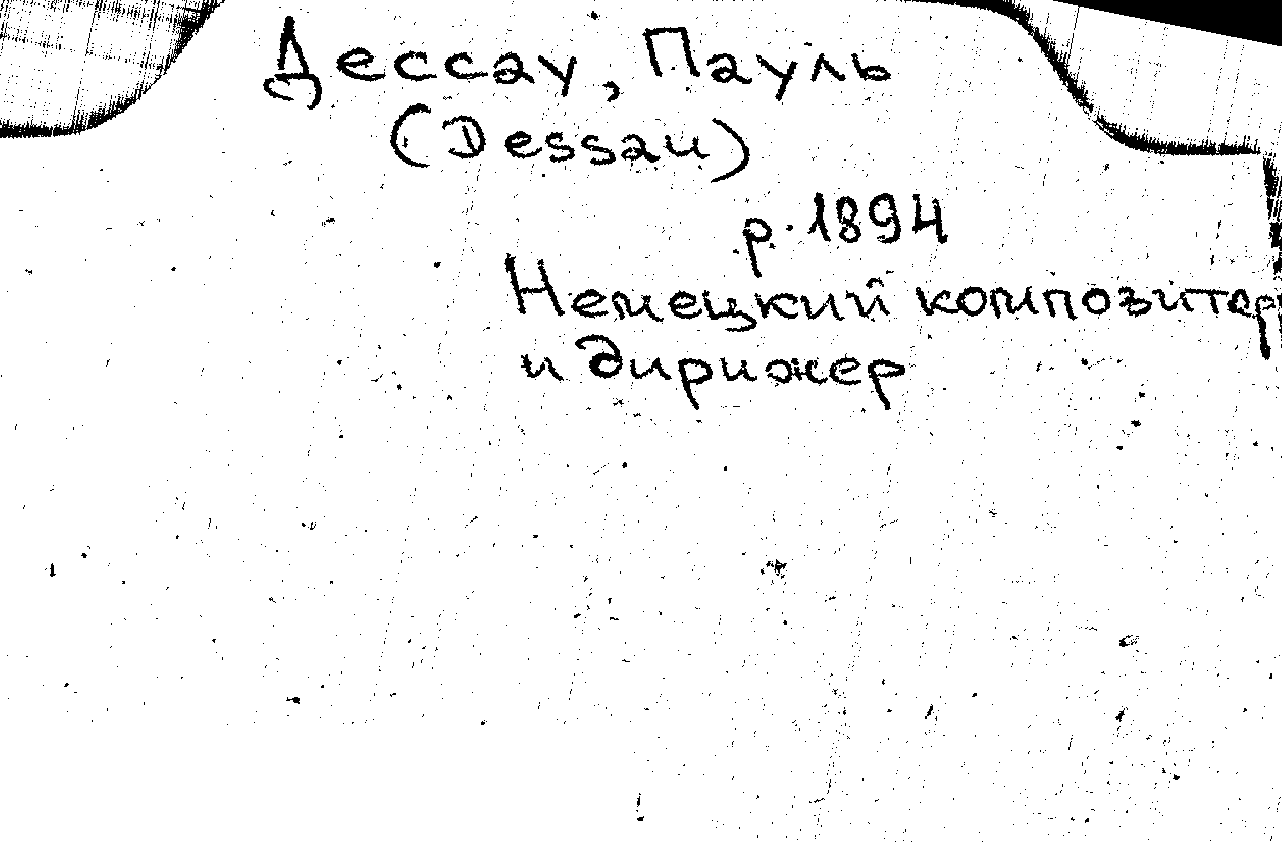 Дессау, Пауль
(Dessau)
р. 1894
Немецкий композитор
и дирижер